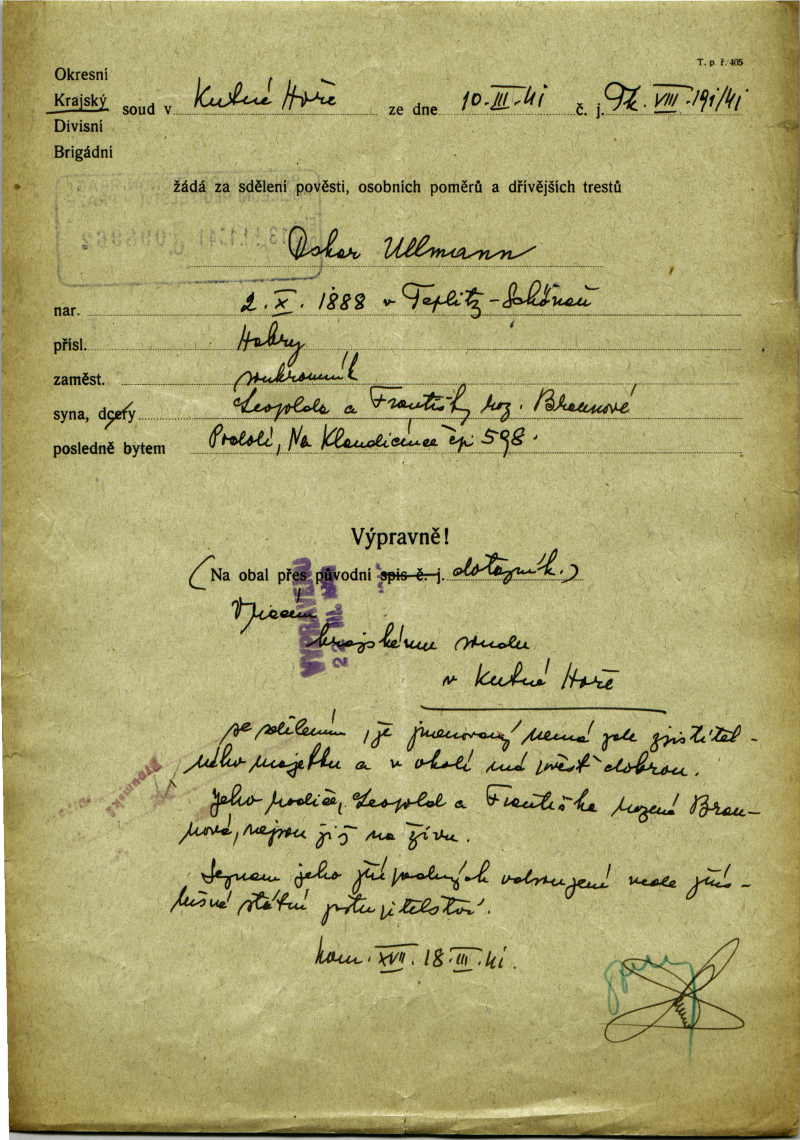 T. p. ř. 405
Okresní
Krajský soud v Kutné Hoře ze dne 10. III. 41 č. j. Tk. VIII. 191/41
Divisní
Brigádní
žádá za sdělení pověsti, osobních poměrů a dřívějších trestů
Oskar Ullmann
nar. 2. X. 1888 v Teplitz-Schönau
přísl. Habry
zaměst. soukromník
syna, dcery Leopolda a Františky roz. Braunové
posledně bytem Podolí, Na Klaudiánce čp. 598.
Výpravně!
(Na obal přes původní spis č. j. dotazník.)
Vrácen
krajskému soudu
v Kutné Hoře
se sdělením, že jmenovaný nemá zde zjistitel-
ného majetku a v okolí má pověst dobrou.
Jeho rodiče, Leopold a Františka rozená Brau-
nová, nejsou již na živu.
Seznam jeho případných odsouzení vede přís-
lušné státní zastupitelství.
kom. XVII. 18. III. 41.
VYPRAVENO